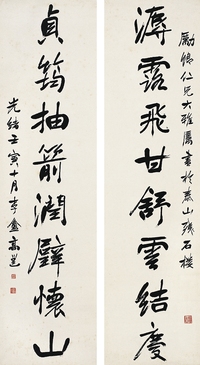 勵鵬仁兄大雅屬書於泰山殘石樓
溥露飛甘舒雲結慶
貞筠抽箭潤璧懷山
光緒壬寅十月李盦高邕